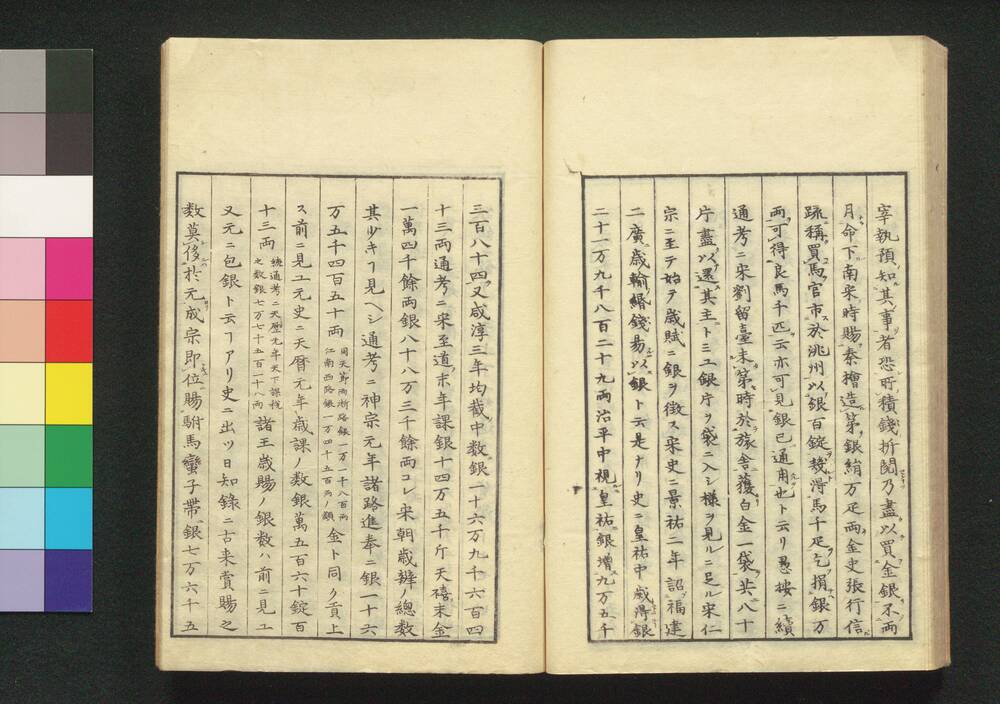 宰執預知其事者恐所積錢折閱乃盡以買金銀不兩
月命下南宋時賜秦檜造第銀絹万疋兩金史張行信
疏稱買馬官市於洮州以銀百錠幾得馬千疋乞捐銀万
兩可得良馬千匹云亦可見銀已通用也ト云リ愚按ニ續
通考ニ宋劉留臺未第時於旅舎獲白金一袋共八十
片盡以還其主トミユ銀片ヲ袋ニ入シ様ヲ見ルニ足ル宋仁
宗ニ至テ始ヲ歲賦ニ銀ヲ徴ス宋史ニ景祐二年詔福建
二廣歲輸緡錢易以銀ト云是ナリ史ニ皇祐中歲得銀
二十一万九千八百二十九両治平中視皇祐銀増九万五千
三百八十四又咸淳三年均裁中数銀一十六万九千六百四
十三両通考ニ宋至道末年課銀十四万五千斤天禧末金
一萬四千餘両銀八十八万三千餘両コレ宋朝歲辨ノ總数
其少キヿ見ヘシ通考ニ神宗元年諸路進奉ニ銀一十六
万五千四百五十両 同天節両浙路銀一万一千八百両江南西路銀一万四十五百両ノ類 金ト同ク貢上
ス前ニ見ユ元史ニ天暦元年歲課ノ数銀萬五百六十錠百
十三両 續通考ニ天歷元年天下課税之数銀七万七十五百一十八両 諸王歲賜ノ銀数ハ前ニ見ユ
又元ニ包銀ト云ヿアリ史ニ出ツ日知錄ニ古来賞賜之
数莫侈於元成宗即位賜駙馬蠻子帶銀七万六千五